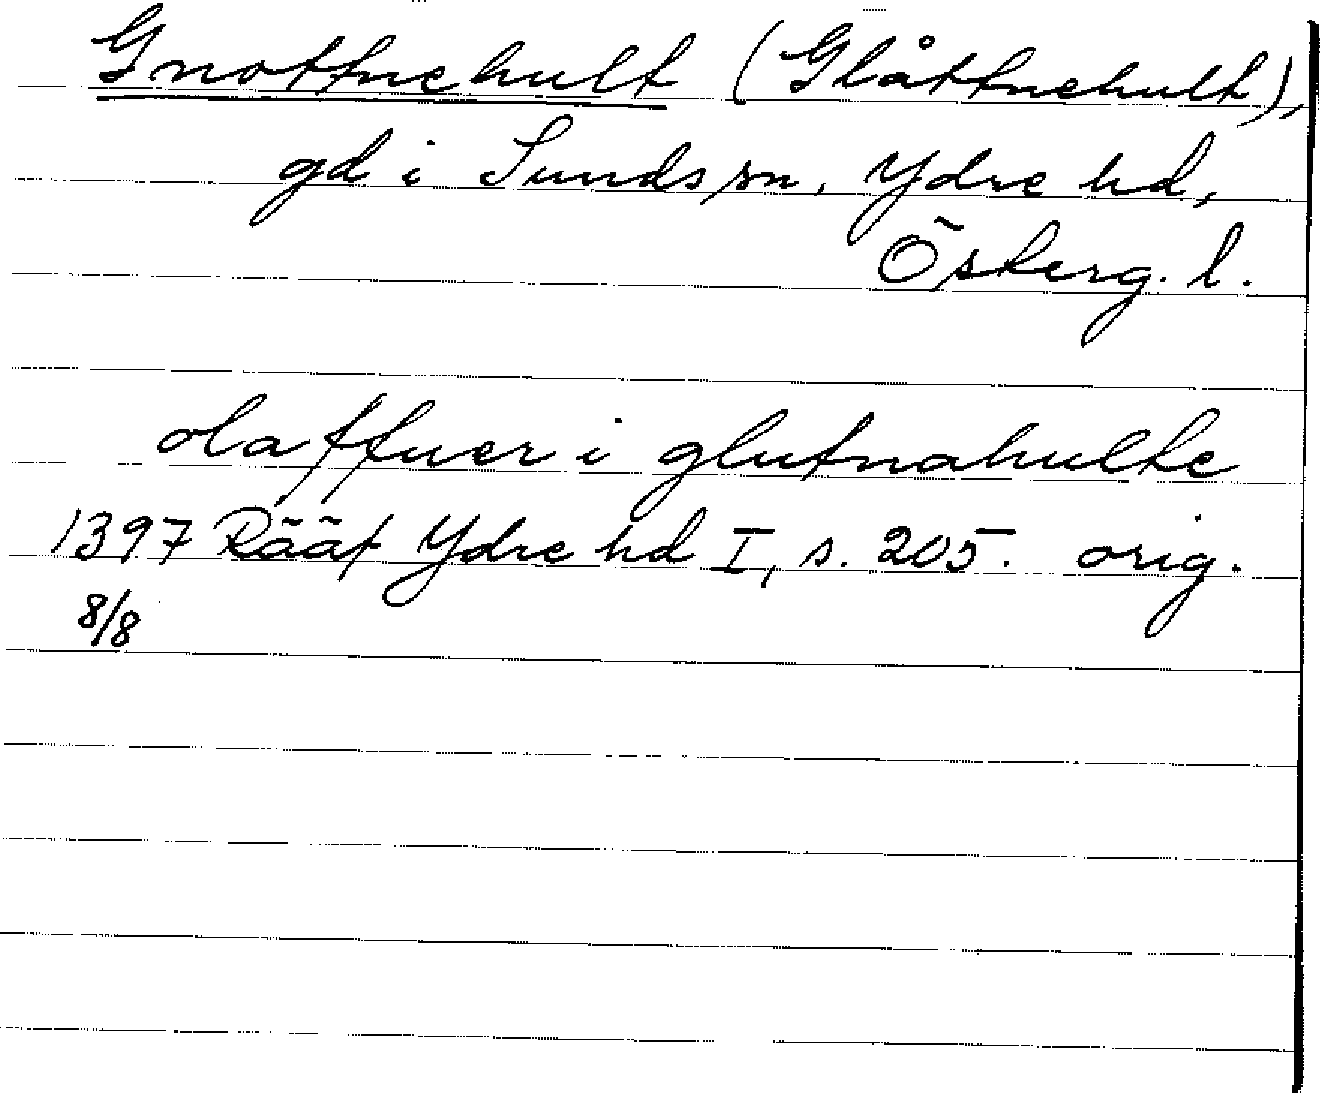 Gnottnehult (Glåttnehult),
gd i Sunds sn, Ydre hd,
Österg. l.
olaffuer i glutnahulte
1397 Rääf Ydre hd I, s. 205. orig.
8/8